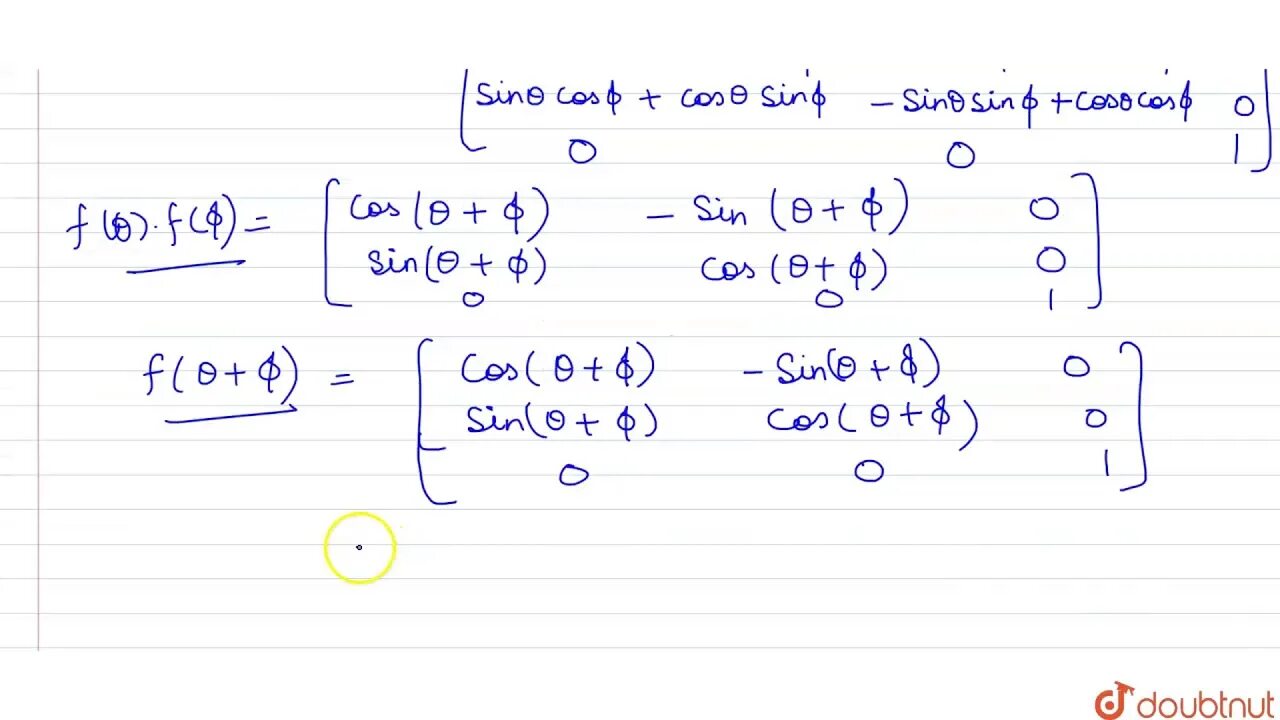 sinθ cosϕ + cosθ sinϕ - sinθ sinϕ + cosθ cosϕ 0
0 0 1
f(θ).f(ϕ) = cos(θ + ϕ) - sin(θ + ϕ) 0
sin(θ + ϕ) cos(θ + ϕ) 0
0 0 1
f(θ + ϕ) = cos(θ + ϕ) - sin(θ + ϕ) 0
sin(θ + ϕ) cos(θ + ϕ) 0
0 0 1
doubtnut